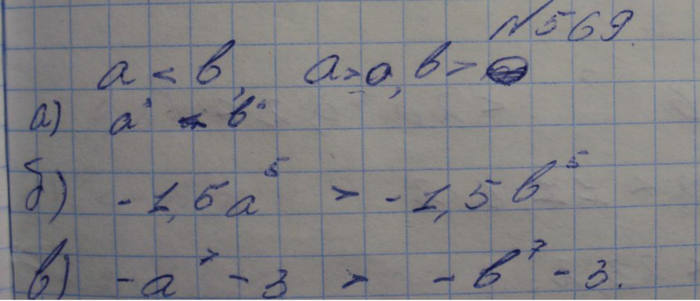 №569.
a < b, a > 0, b > 0
а) a < b
б) -1,5a⁵ > -1,5b⁵
в) -a⁷ - 3 > -b⁷ - 3.